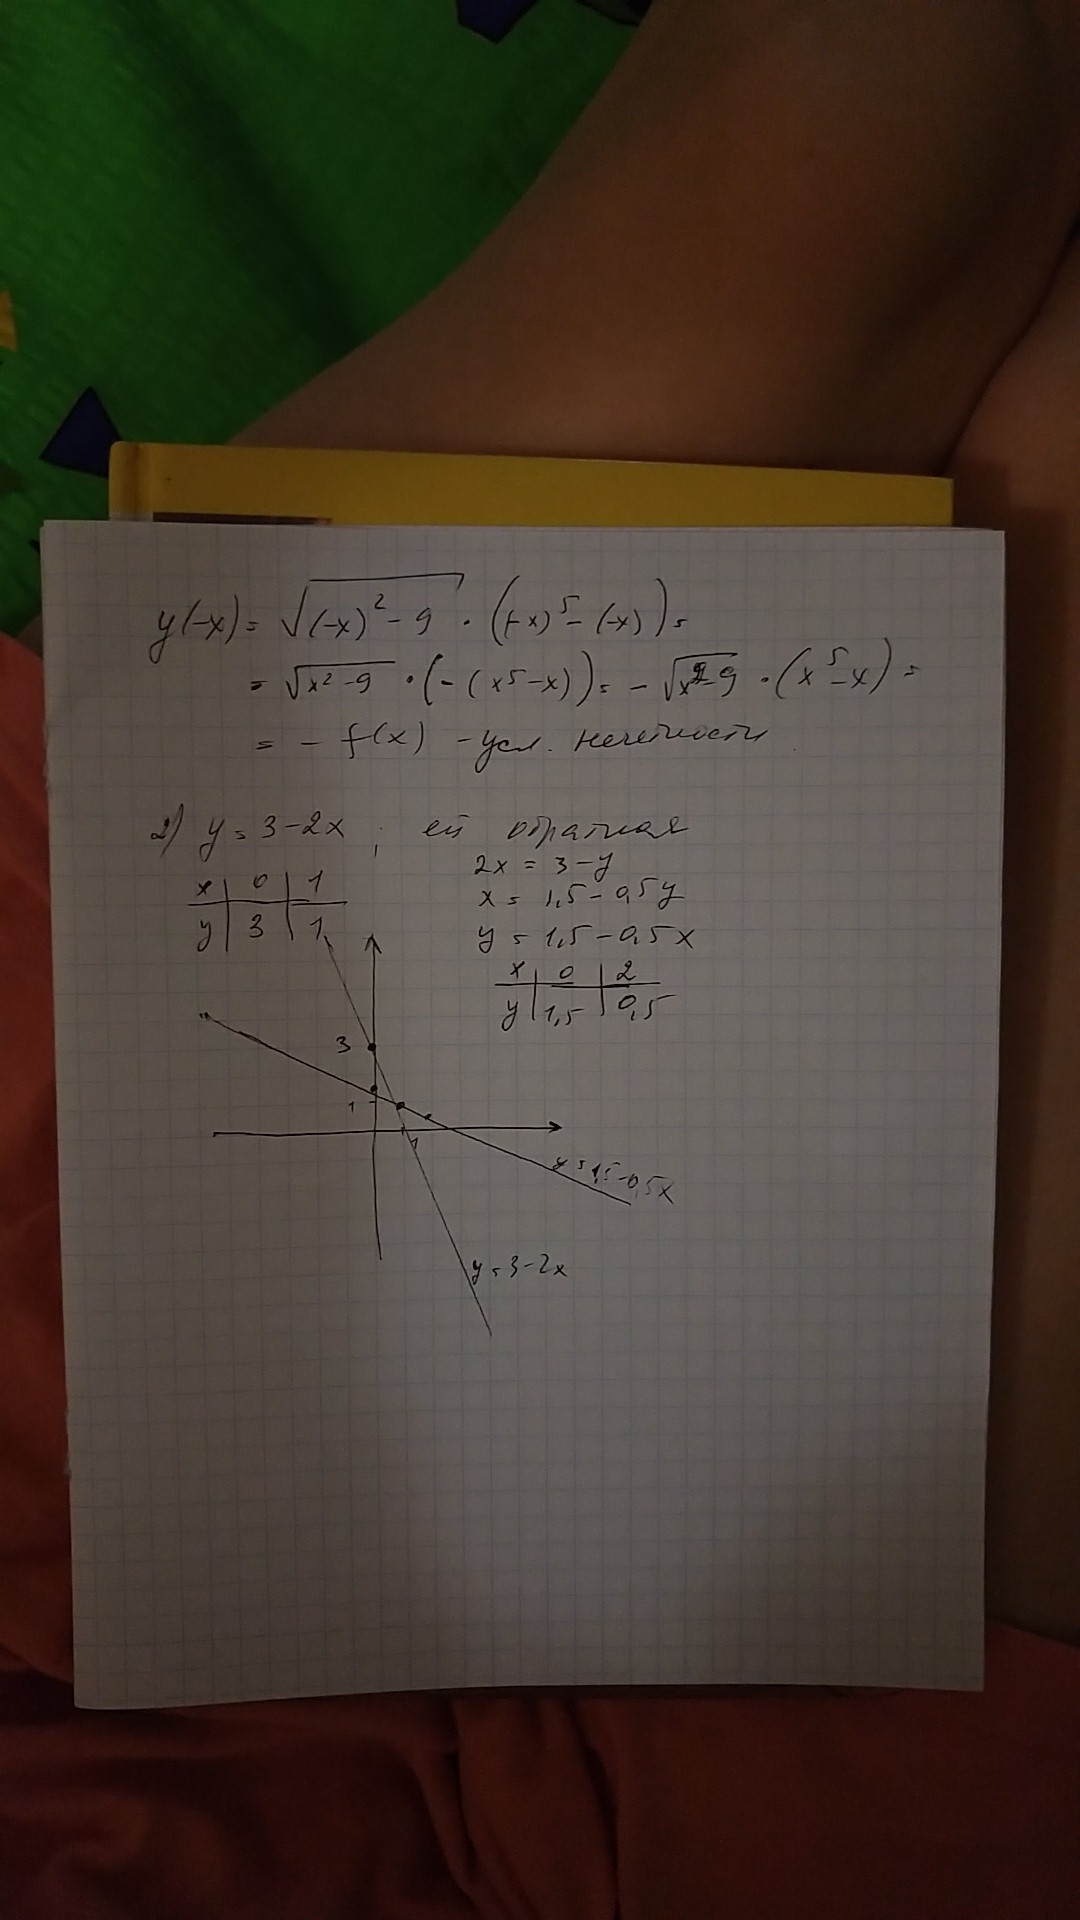 y(-x) = √((-x)² - 9) · ((-x)⁵ - (-x)) =
= √(x² - 9) · (-(x⁵ - x)) = - √(x² - 9) · (x⁵ - x) =
= - f(x) - усл. нечетности
2) y = 3 - 2x ; ей обратная
2x = 3 - y
x | 0 | 1
x = 1,5 - 0,5y
y | 3 | 1
y = 1,5 - 0,5x
x | 0 | 2
y | 1,5 | 0,5
3
1
1
y = 1,5 - 0,5x
y = 3 - 2x